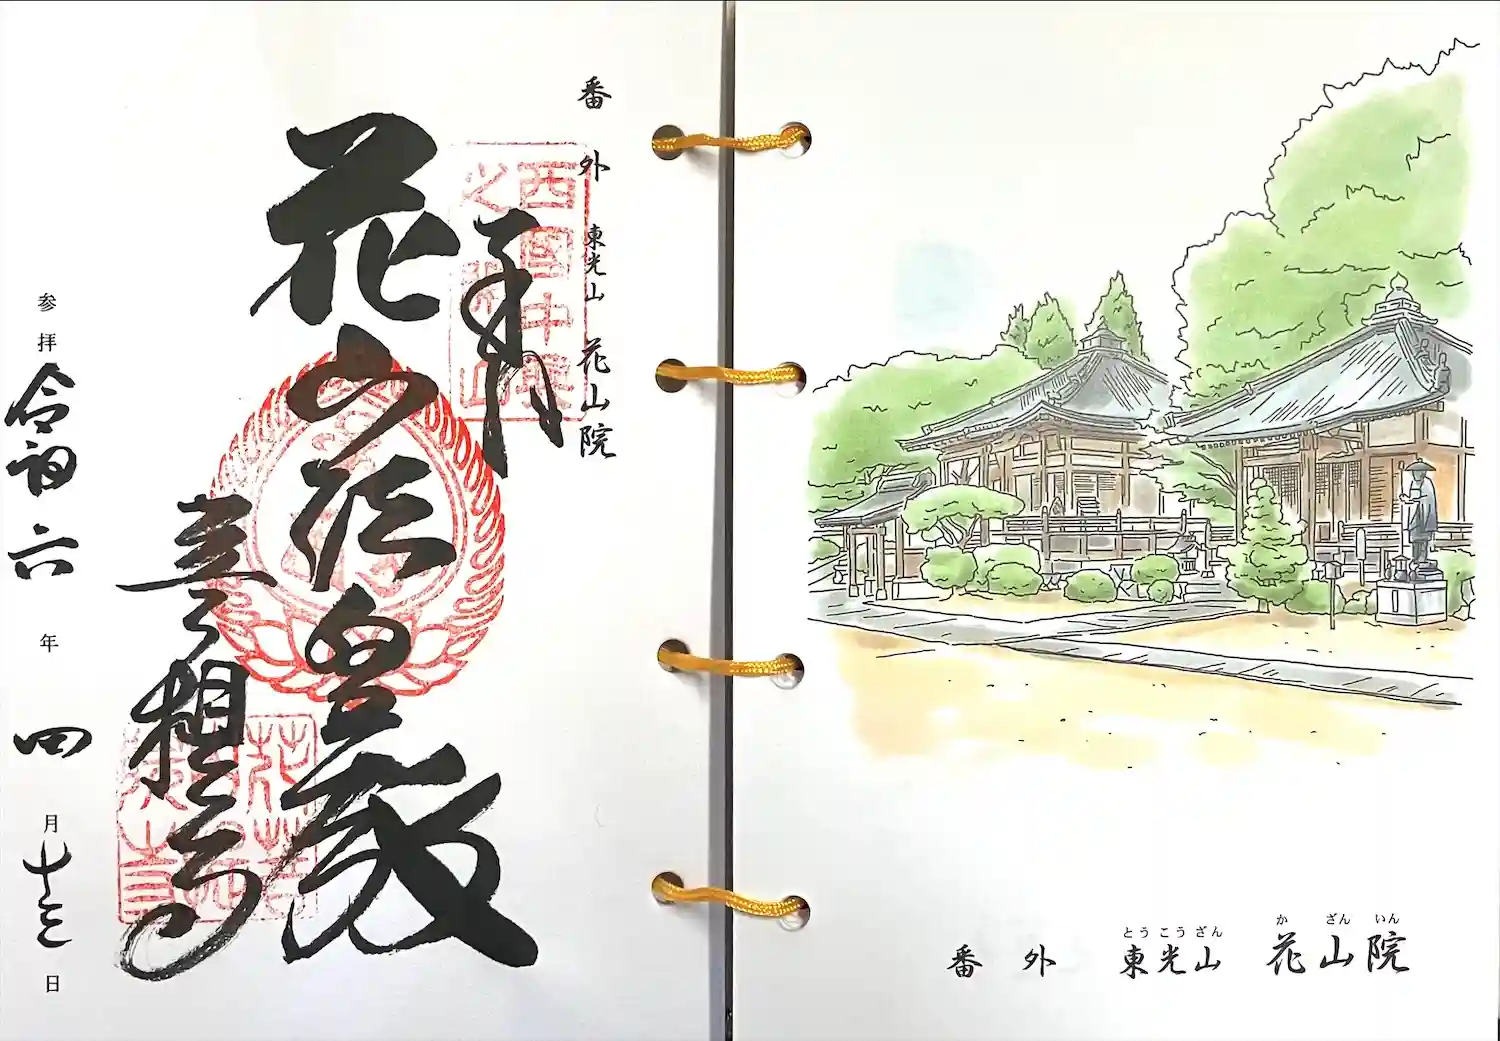 番外 東光山 花山院
奉拝
西国中興
花山法皇殿
参拝 令和 六 年 四 月 十三 日
とうこうざん か ざん いん
番 外 東光山 花山院